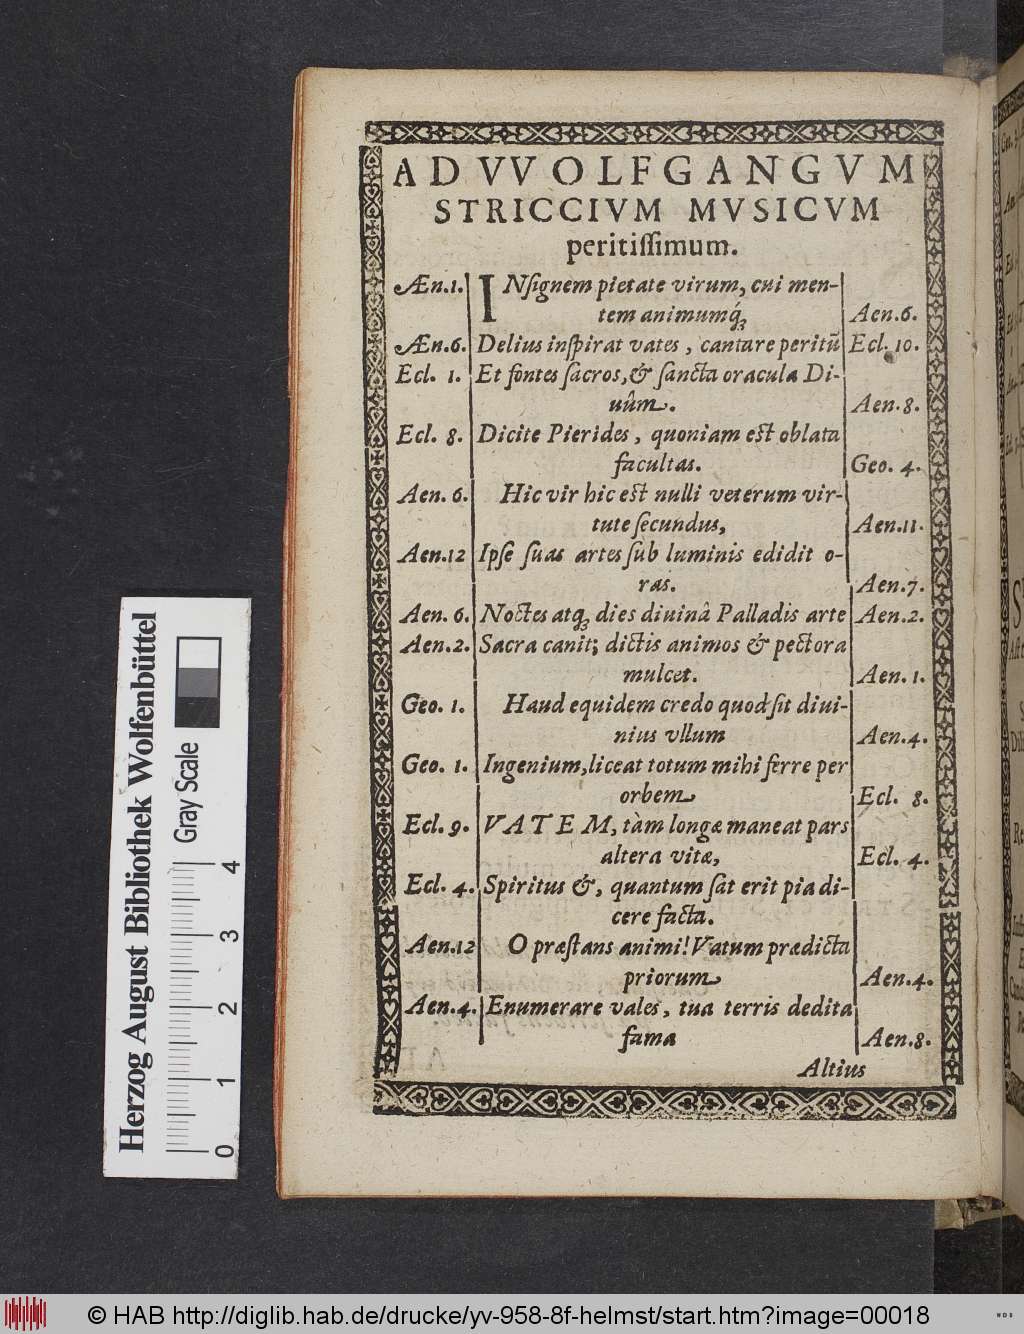 AD VVOLFGANGVM
STRICCIVM MVSICVM
peritiſſimum.
Æn.1. INſignem pietate virum, cui men-
tem animumq́; Aen.6.
Æn.6. Delius inſpirat vates, cantare peritũ Ecl. 10.
Ecl. 1. Et fontes ſacros, & ſancta oracula Di-
uûm. Aen.8.
Ecl. 8. Dicite Pierides, quoniam eſt oblata
facultas. Geo. 4.
Aen. 6. Hic vir hic eſt nulli veterum vir-
tute ſecundus, Aen.11.
Aen.12 Ipſe ſuas artes ſub luminis edidit o-
ras. Aen.7.
Aen. 6. Noctes atq; dies diuinâ Palladis arte Aen.2.
Aen.2. Sacra canit; dictis animos & pectora
mulcet. Aen. 1.
Geo. 1. Haud equidem credo quod ſit diui-
nius vllum Aen.4.
Geo. 1. Ingenium, liceat totum mihi ferre per
orbem Ecl. 8.
Ecl. 9. VATEM, tàm longæ maneat pars
altera vitæ, Ecl. 4.
Ecl. 4. Spiritus &, quantum ſat erit pia di-
cere facta.
Aen.12 O præſtans animi! Vatum prædicta
priorum Aen.4.
Aen.4. Enumerare vales, tua terris dedita
fama Aen.8.
Altius
Herzog August Bibliothek Wolfenbüttel
Gray Scale
0 1 2 3 4
© HAB http://diglib.hab.de/drucke/yv-958-8f-helmst/start.htm?image=00018